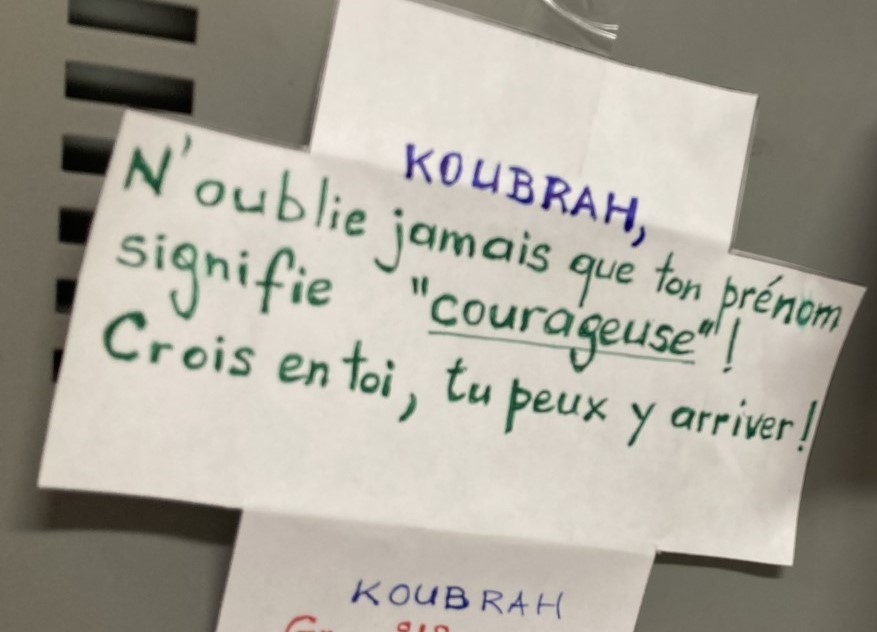 KOUBRAH,
N'oublie jamais que ton prénom
signifie "courageuse"!
Crois en toi, tu peux y arriver!
KOUBRAH